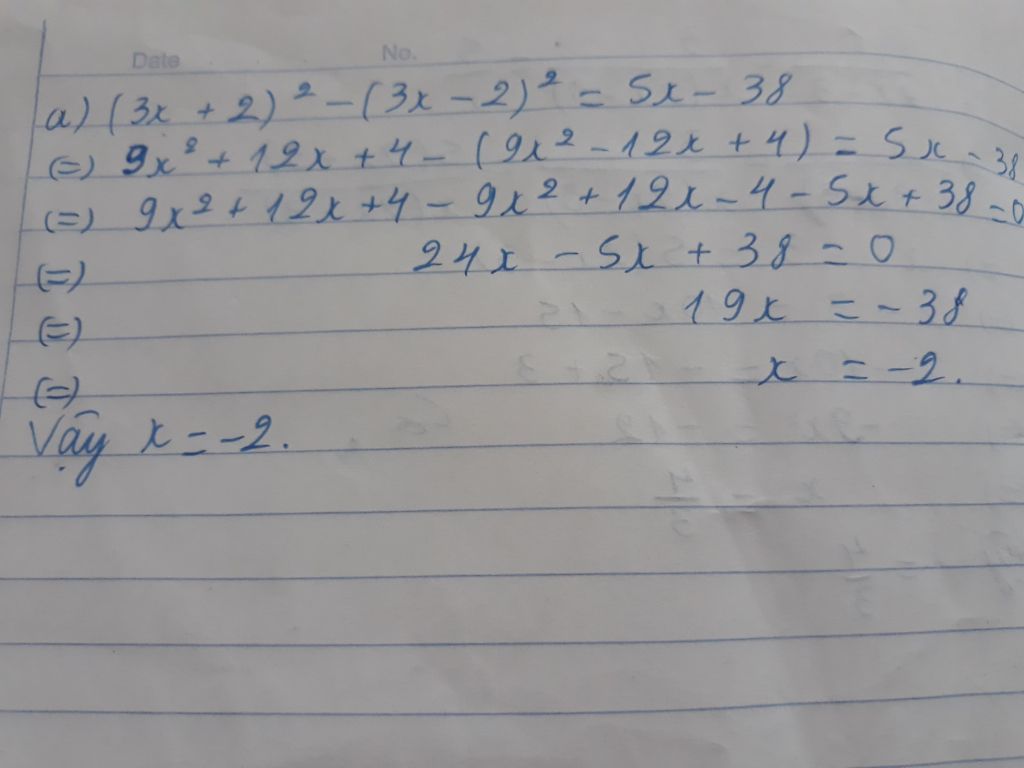 Date No.
a) (3x + 2)² - (3x - 2)² = 5x - 38
(=) 9x² + 12x + 4 - (9x² - 12x + 4) = 5x - 38
(=) 9x² + 12x + 4 - 9x² + 12x - 4 - 5x + 38 = 0
(=) 24x - 5x + 38 = 0
(=) 19x = - 38
(=) x = -2.
Vậy x = -2.